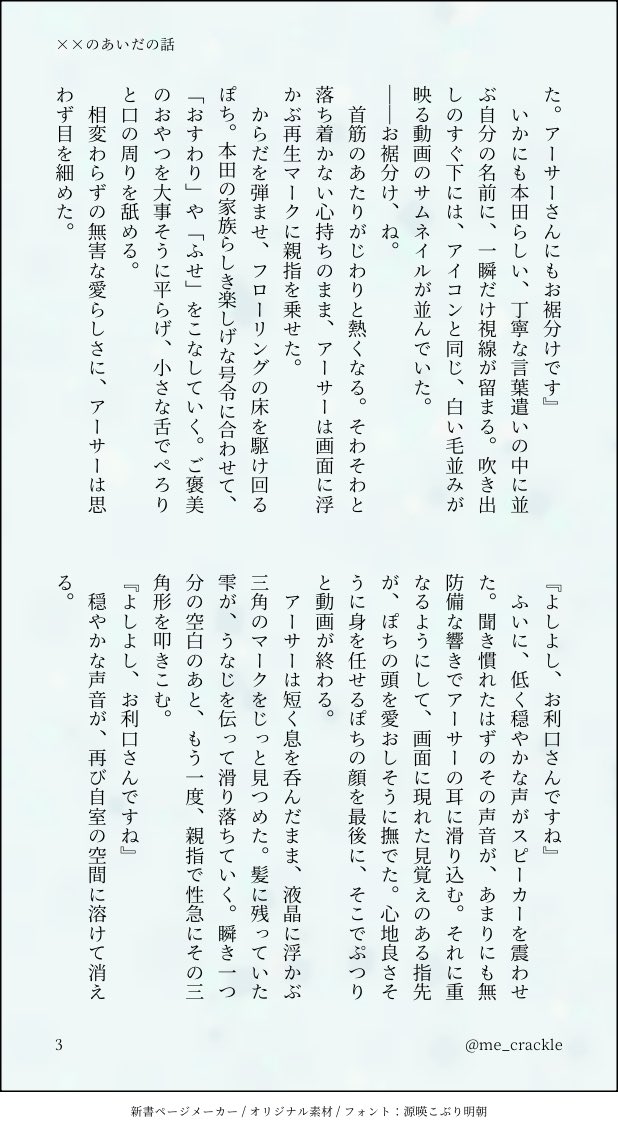 ××のあいだの話
た。アーサーさんにもお裾分けです』
　いかにも本田らしい、丁寧な言葉遣いの中に並
ぶ自分の名前に、一瞬だけ視線が留まる。吹き出
しのすぐ下には、アイコンと同じ、白い毛並みが
映る動画のサムネイルが並んでいた。
――お裾分け、ね。
　首筋のあたりがじわりと熱くなる。そわそわと
落ち着かない心持ちのまま、アーサーは画面に浮
かぶ再生マークに親指を乗せた。
　からだを弾ませ、フローリングの床を駆け回る
ぽち。本田の家族らしき楽しげな号令に合わせて、
「おすわり」や「ふせ」をこなしていく。ご褒美
のおやつを大事そうに平らげ、小さな舌でぺろり
と口の周りを舐める。
　相変わらずの無害な愛らしさに、アーサーは思
わず目を細めた。
『よしよし、お利口さんですね』
　ふいに、低く穏やかな声がスピーカーを震わせ
た。聞き慣れたはずのその声音が、あまりにも無
防備な響きでアーサーの耳に滑り込む。それに重
なるようにして、画面に現れた見覚えのある指先
が、ぽちの頭を愛おしそうに撫でた。心地良さそ
うに身を任せるぽちの顔を最後に、そこでぷつり
と動画が終わる。
　アーサーは短く息を呑んだまま、液晶に浮かぶ
三角のマークをじっと見つめた。髪に残っていた
雫が、うなじを伝って滑り落ちていく。瞬き一つ
分の空白のあと、もう一度、親指で性急にその三
角形を叩きこむ。
『よしよし、お利口さんですね』
　穏やかな声音が、再び自室の空間に溶けて消え
る。
3
@me_crackle
新書ページメーカー / オリジナル素材 / フォント：源暎こぶり明朝